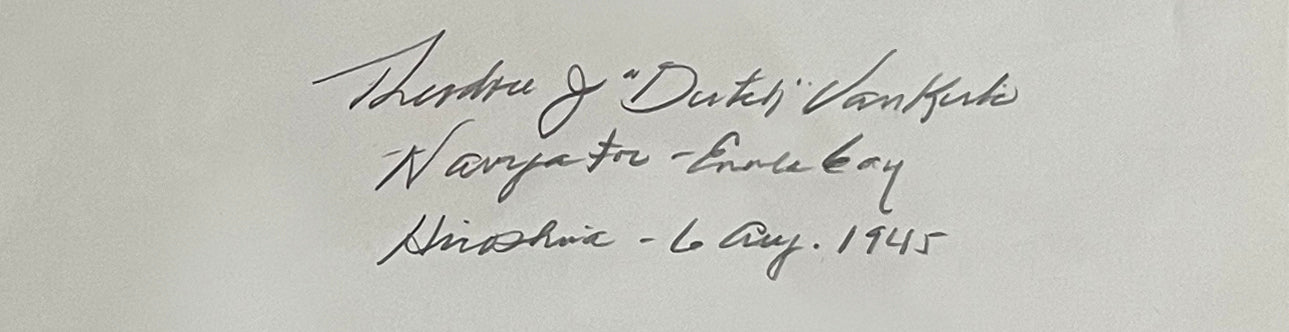 Theodore J "Dutch" VanKirk
Navigator - Enola Gay
Hiroshima - 6 Aug. 1945